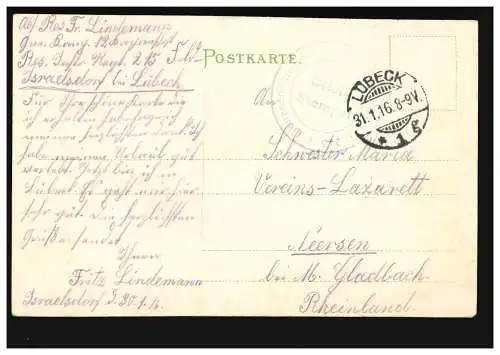 Abs. Res. Fr. Lindemann
Res. Inftr. Regt. 215
Israelsdorf bei Lübeck
POSTKARTE.
LÜBECK
31.1.16.8-9V.
* 1 §
Für Ihre schöne Karte
ich erhalten habe sage ich
meinen herzlichsten Dank. Ich
habe meinen Urlaub gut
verlebt. Jetzt bin ich in
Lübeck. Es geht mir hier
sehr gut. Die herzlichsten
Grüße sendet
Ihnen
Fritz Lindemann
Israelsdorf d. 30.1.16.
An
Schwester Maria
Vereins-Lazarett
Neersen
bei M. Gladbach
Rheinland.